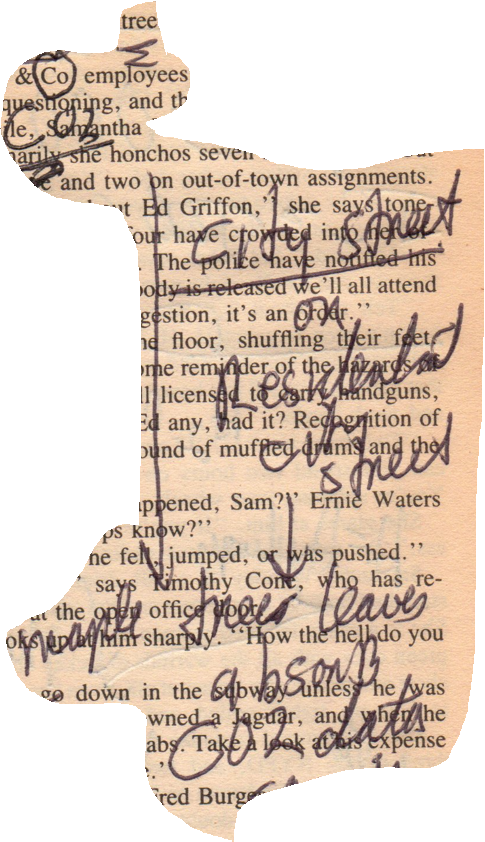 tree
& Co employees
questioning, and th
CO2
le, Samantha
arily she honchos seven
and two on out-of-town assignments.
ut Ed Griffon,'' she says tone-
four have crowded into her of-
City street
. The police have notified his
body is released we'll all attend
gestion, it's an order.''
on
he floor, shuffling their feet,
ome reminder of the hazards of
Residential
ll licensed to carry handguns,
Ed any, had it? Recognition of
city
ound of muffled drums and the
street
appened, Sam?'' Ernie Waters
ps know?''
ne fell, jumped, or was pushed.''
' says Timothy Cone, who has re-
at the open office door.
maple trees leaves
oks up at him sharply. ''How the hell do you
absorb
go down in the subway unless he was
owned a Jaguar, and when he
CO2 data
abs. Take a look at his expense
e.''
Fred Burge